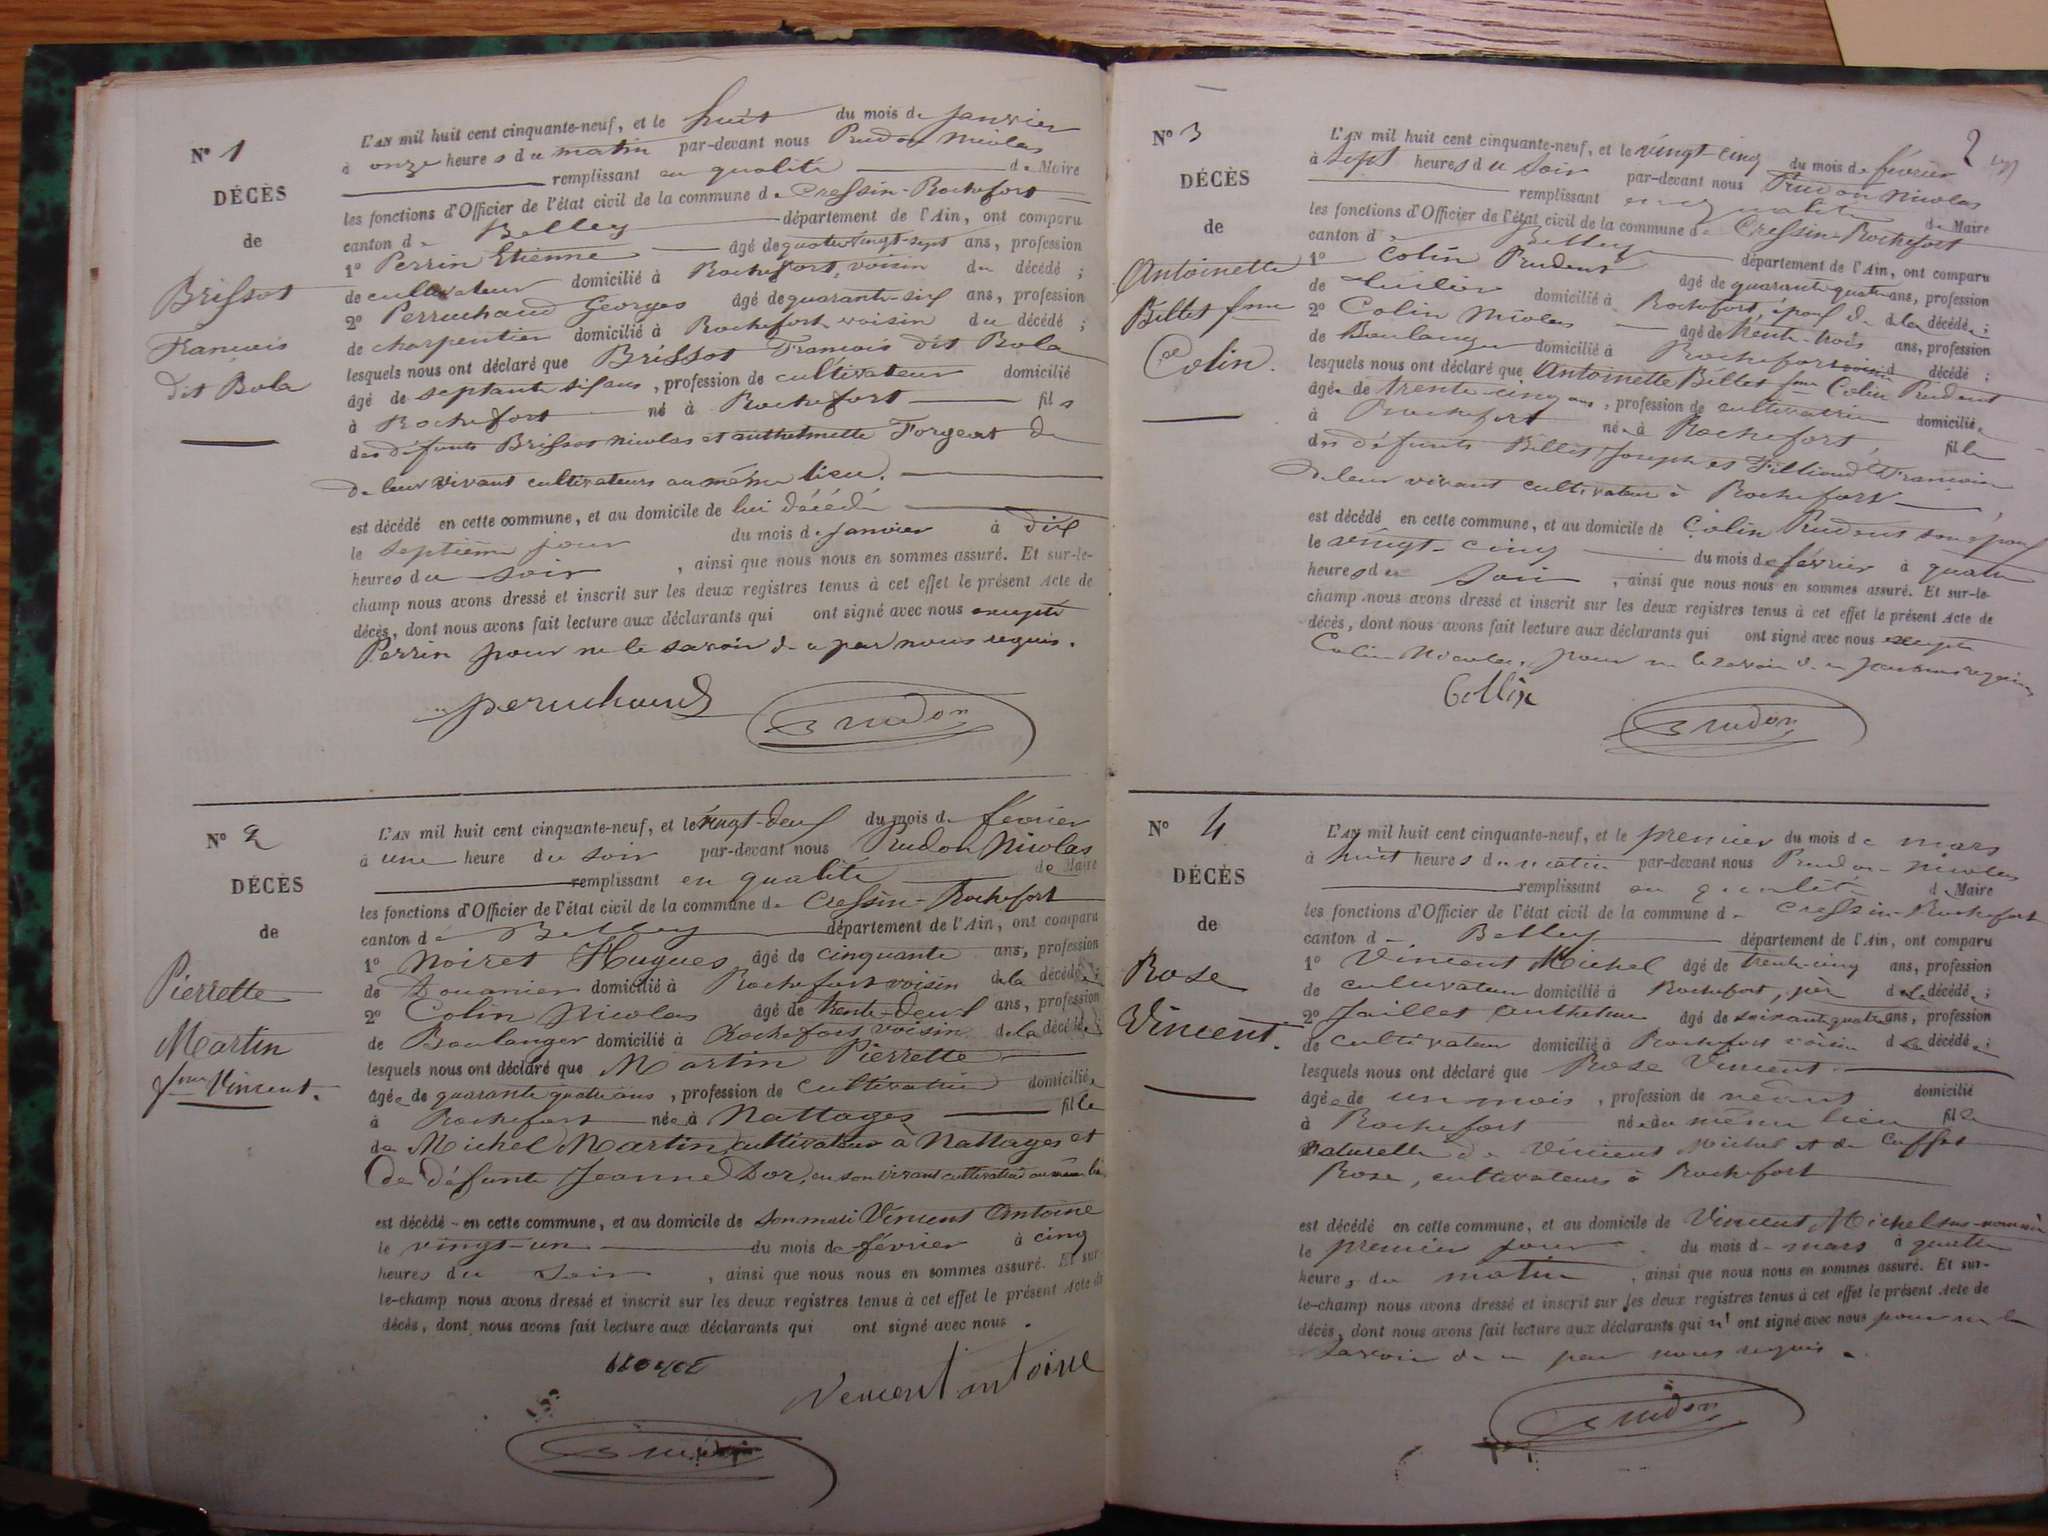 N° 1
DÉCÈS
de
Brissot
François
dit Bola
L'AN mil huit cent cinquante-neuf, et le huit du mois de janvier
à onze heures du matin par-devant nous Prudon Nicolas
remplissant en qualité de Maire
les fonctions d'Officier de l'état civil de la commune de Cressin-Rochefort
canton de Belley département de l'Ain, ont comparu
1° Perrin Etienne âgé de quatre vingt-sept ans, profession
de cultivateur domicilié à Rochefort, voisin du décédé ;
2° Perruchaud Georges âgé de quarante-six ans, profession
de charpentier domicilié à Rochefort voisin du décédé ;
lesquels nous ont déclaré que Brissot François dit Bola
âgé de septante six ans, profession de cultivateur domicilié
à Rochefort né à Rochefort fils
des défunts Brissot Nicolas et anthelmette Forgeat de
de leur vivant cultivateurs au même lieu.
est décédé en cette commune, et au domicile de lui décédé
le septième jour du mois de janvier à dix
heures du soir, ainsi que nous nous en sommes assuré. Et sur-le-
champ nous avons dressé et inscrit sur les deux registres tenus à cet effet le présent Acte de
décès, dont nous avons fait lecture aux déclarants qui ont signé avec nous excepté
Perrin pour ne le savoir de ce par nous requis.
perruchaud Prudon
N° 2
DÉCÈS
de
Pierrette
Martin
fme Vincent.
L'AN mil huit cent cinquante-neuf, et le vingt-deux du mois de février
à une heure du soir par-devant nous Prudon Nicolas
remplissant en qualité de Maire
les fonctions d'Officier de l'état civil de la commune de Cressin-Rochefort
canton de Belley département de l'Ain, ont comparu
1° Noiret Hugues âgé de cinquante ans, profession
de Douanier domicilié à Rochefort voisin de la décédée ;
2° Colin Nicolas âgé de trente-deux ans, profession
de Boulanger domicilié à Rochefort voisin de la décédée ;
lesquels nous ont déclaré que Martin Pierrette
âgée de quarante quatre ans, profession de cultivatrice domiciliée
à Rochefort née à Nattages fille
de Michel Martin, cultivateur à Nattages et
de défunte Jeanne Dor, en son vivant cultivatrice au même lieu
est décédé en cette commune, et au domicile de son mari Vincent Antoine
le vingt-un du mois de février à cinq
heures du soir, ainsi que nous nous en sommes assuré. Et sur-
le-champ nous avons dressé et inscrit sur les deux registres tenus à cet effet le présent Acte de
décès, dont nous avons fait lecture aux déclarants qui ont signé avec nous.
Vencent antoine
Prudon
2
N° 3
DÉCÈS
de
Antoinette
Billet fme
de
Colin.
L'AN mil huit cent cinquante-neuf, et le vingt-cinq du mois de février
à sept heures du soir par-devant nous Prudon Nicolas
remplissant en qualité de Maire
les fonctions d'Officier de l'état civil de la commune de Cressin-Rochefort
canton de Belley département de l'Ain, ont comparu
1° Colin Prudent âgé de quarante quatre ans, profession
de tuilier domicilié à Rochefort, époux de la décédée ;
2° Colin Nicolas âgé de trente-trois ans, profession
de Boulanger domicilié à Rochefort voisin d décédé ;
lesquels nous ont déclaré que Antoinette Billet fme Colin Prudent
âgée de trente-cinq ans, profession de cultivatrice domiciliée
à Rochefort née à Rochefort, fille
des défunts Billet Joseph et Filliand Françoise
de leur vivant cultivateur à Rochefort
est décédé en cette commune, et au domicile de Colin Prudent son époux
le vingt-cinq du mois de février à quatre
heures du soir, ainsi que nous nous en sommes assuré. Et sur-le-
champ nous avons dressé et inscrit sur les deux registres tenus à cet effet le présent Acte de
décès, dont nous avons fait lecture aux déclarants qui ont signé avec nous excepté
Colin Nicolas, pour ne le savoir de ce par nous requis
Collin Prudon
N° 4
DÉCÈS
de
Rose
Vincent.
L'AN mil huit cent cinquante-neuf, et le premier du mois de mars
à huit heures du matin par-devant nous Prudon Nicolas
remplissant en qualité de Maire
les fonctions d'Officier de l'état civil de la commune de Cressin-Rochefort
canton de Belley département de l'Ain, ont comparu
1° Vincent Michel âgé de trente-cinq ans, profession
de cultivateur domicilié à Rochefort, père de la décédée ;
2° Jaillet Anthelme âgé de soixante quatre ans, profession
de cultivateur domicilié à Rochefort voisin de la décédée ;
lesquels nous ont déclaré que Rose Vincent
âgée de un mois, profession de néant domicilié
à Rochefort née au même lieu fille
naturelle de Vincent Michel et de Cuffet
Rose, cultivateurs à Rochefort
est décédé en cette commune, et au domicile de Vincent Michel sus-nommé
le premier jour du mois de mars à quatre
heures du matin, ainsi que nous nous en sommes assuré. Et sur-
le-champ nous avons dressé et inscrit sur les deux registres tenus à cet effet le présent Acte de
décès, dont nous avons fait lecture aux déclarants qui n'ont signé avec nous pour ne le
savoir de ce par nous requis.
Prudon